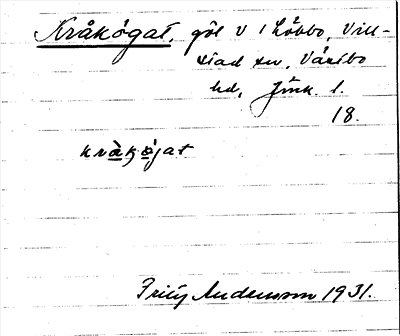 Kråkögat, göl V i Löbbo, Vill-
stad sn, Västbo
hd, Jönk. l.
18.
kràkǫ̀jat
Fritz Andersson 1931.